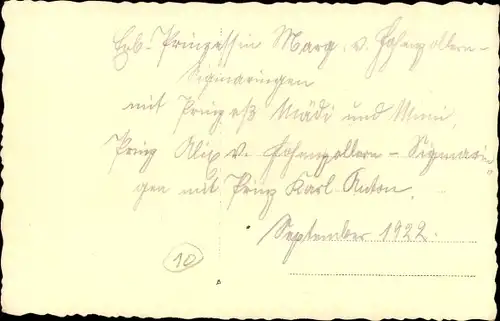 Erb-Prinzessin Marg. v. Hohenzollern-
Sigmaringen
mit Prinzeß Mädi und Mimi,
Prinz Alix v. Hohenzollern-Sigmarin-
gen mit Prinz Karl Anton.
September 1922.
10